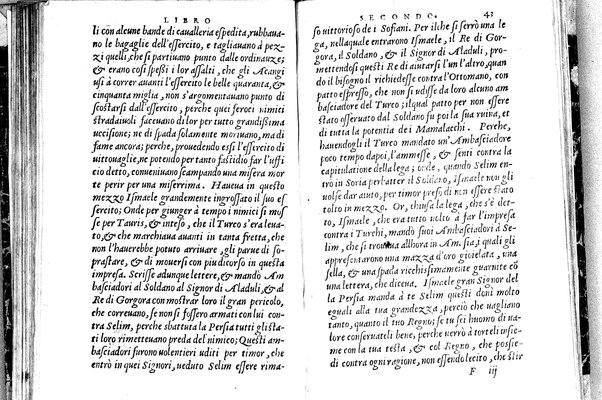 LIBRO
li con alcune bande di cavalleria espedita, rubbavano
le bagaglie dell'essercito, e tagliavano à pezzi
quelli, che si partivano punto dalle ordinanze;
& erano così spessi i lor assalti, che gli Acangi
usi à correr avanti l'essercito le belle quaranta, &
cinquanta miglia, non s'argomentavano punto di
scostarsi dall'essercito, perche quei feroci nimici
stradaiuoli faceuano di lor per tutto grandißima
uccisione; ne di spada solamente moriuano, ma di
fame ancora; perche, provedendo essi l'essercito di
vittouaglie, ne potendo per tanto fastidio far l'uffi
cio detto, conveniuano scampando una misera mor
te perir per una miserrima. Haueua in questo
mezzo Ismaele grandemente ingrossato il suo es
sercito; Onde per giunger à tempo i nimici si mos
se per Tauris, & inteso, che il Turco s'era leva-
to, & che marchiaua avanti in tanta fretta, che
non l'hauerebbe potuto arrivare, gli parue di so-
prastare, & di mouersi con piu ditorso in questa
impresa. Scrisse adunque lettere, & mandò Am
basciadori al Soldano al Signor di Aladuli, & al
Re di Gorgora con mostrar loro il gran pericolo,
che correuano, se non si fossero armati con lui con
tra Selim, perche sbattuta la Persia tutti gli sta-
ti loro rimetteuano preda del nimico; Questi am-
basciadori furono uolentieri uditi per timor, che
entrò in quei Signori, ueduto Selim essere rima-
SECONDO. 43
so vittorioso de i Sofiani. Per il che si fermò una le
ga, nella quale entrarono Ismaele, il Re di Gor-
gora, il Soldano, & il Signor di Aladuli, pro-
mettendosi questi Re di aiutarsi l'un l'altro, quan
do il bisogno il richiedesse contra l'Ottomano, con
patto espresso, che non si udisse da loro alcuno am
basciador del Turco; il qual patto per non essere
stato osseruato dal Soldano fu poi la sua ruina, et
di tutta la potentia dei Mamalacchi. Perche,
havendogli il Turco mandato un'Ambasciadore
poco tempo dapoi, l'ammesse, & sentì contra la
capitulatione della lega; onde, quando Selim en-
trò in Soria per batter il Soldano, Ismaele non gli
uolse dar aiuto, per timor preso di non essere stato
tolto in mezzo. Or, chiusa la lega, che s'è
detto, Ismaele, che era tutto uolto à far l'impresa
contra i Turchi, mandò suoi Ambasciadori à Se-
lim, che si trouaua allhora in Amasia; i quali gli
appresentarono una mazza d'oro gioielata, una
sella, & una spada ricchissimamente guarnite cō
una lettera, che diceua. Ismaele gran Signor del
la Persia manda à te Selim questi doni molto
eguali alla tua grandezza, perciò che uagliano
tanto, quanto il tuo Regno; se tu sei huomo di ua-
lore conseruateli bene, perche uerrò à torteli insie-
me con la tua testa, & col Regno, che posse-
di contra ogni ragione, non essendo lecito, che stir
F iij